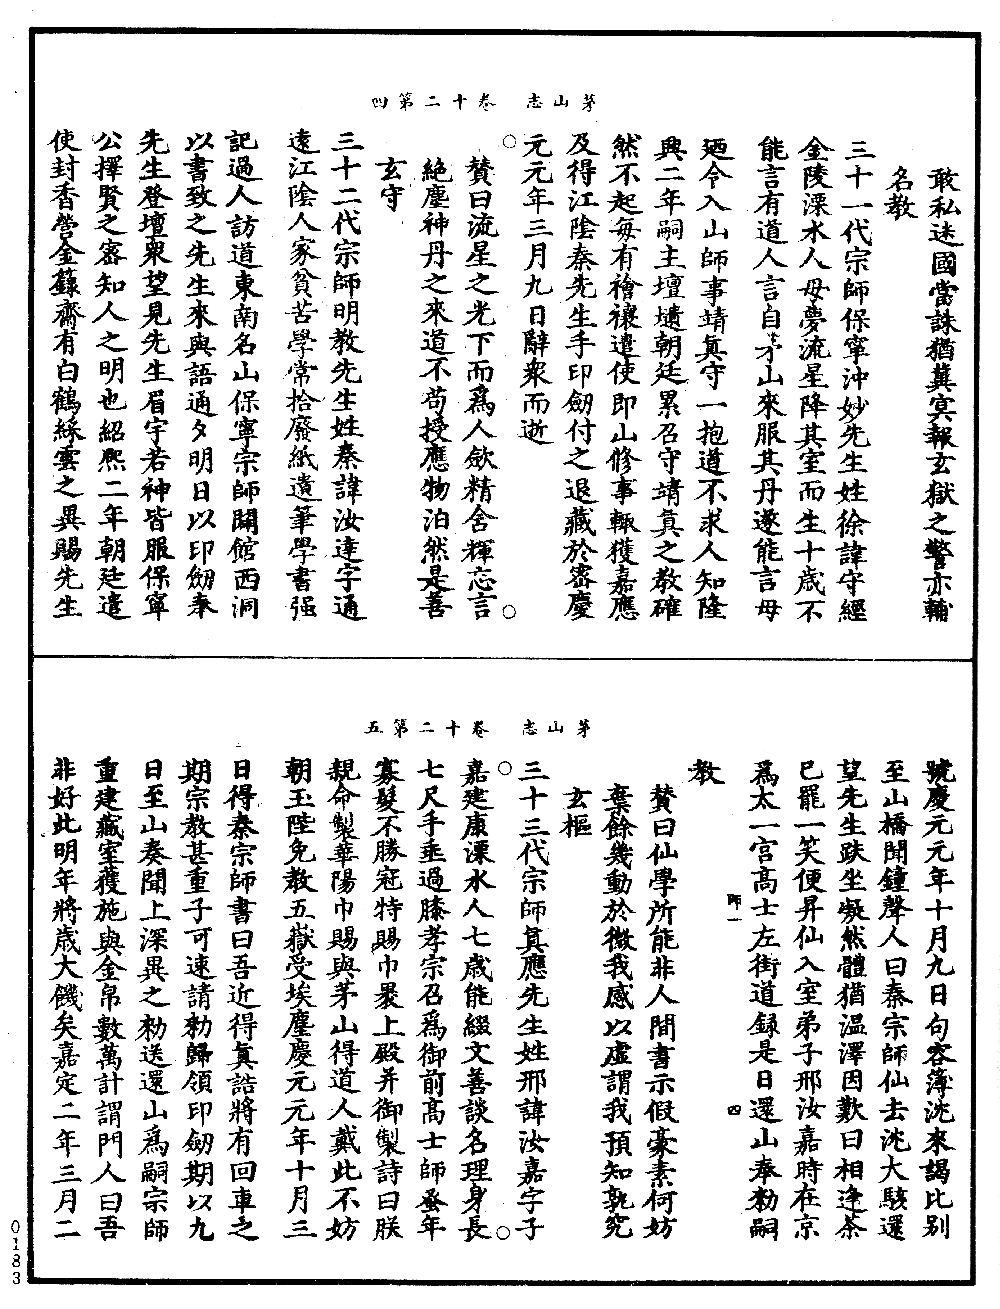 茅山志　卷十二第四
敢私送國當誅猶冀冥報玄獄之警亦輔
名教
三十一代宗師保寧沖妙先生姓徐諱守經
金陵溧水人母夢流星降其室而生十歲不
能言有道人言自茅山來服其丹遂能言母
廼令入山師事靖眞守一抱道不求人知隆
興二年嗣主壇墠朝廷累召守靖眞之教確
然不起每有禬禳遣使即山修事輒獲嘉應
及得江陰秦先生手印劒付之退藏於密慶
元元年三月九日辭衆而逝
贊曰流星之光下而爲人歛精舍輝忘言
絶塵神丹之來道不苟授應物泊然是善
玄守
三十二代宗師明教先生姓秦諱汝達字通
遠江陰人家貧苦學常拾廢紙遺筆學書强
記過人訪道東南名山保寧宗師闢館西洞
以書致之先生來與語通夕明日以印劒奉
先生登壇衆望見先生眉宇若神皆服保寧
公擇賢之審知人之明也紹熙二年朝廷遣
使封香營金籙齋有白鶴綵雲之異賜先生
茅山志　卷十二第五
號慶元元年十月九日句容簿洸來謁比别
至山橋聞鐘聲人曰秦宗師仙去洸大駭還
望先生趺坐凝然體猶温澤因歎曰相逢茶
已罷一笑便昇仙入室弟子邢汝嘉時在京
爲太一宫高士左街道録是日還山奉勑嗣
教
贊曰仙學所能非人間書示假豪素何妨
棄餘幾動於微我感以虛謂我預知孰究
玄樞
三十三代宗師眞應先生姓邢諱汝嘉字子
嘉建康溧水人七歲能綴文善談名理身長
七尺手垂過膝孝宗召爲御前高士師蚤年
寡髮不勝冠特賜巾裹上殿并御製詩曰朕
親命製華陽巾賜與茅山得道人戴此不妨
朝玉陛免教五嶽受埃塵慶元元年十月三
日得秦宗師書曰吾近得眞誥將有回車之
期宗教甚重子可速請勑歸領印劒期以九
日至山奏聞上深異之勑送還山爲嗣宗師
重建藏室獲施與金帛數萬計謂門人曰吾
非好此明年將歲大饑矣嘉定二年三月二
師一　四
0183